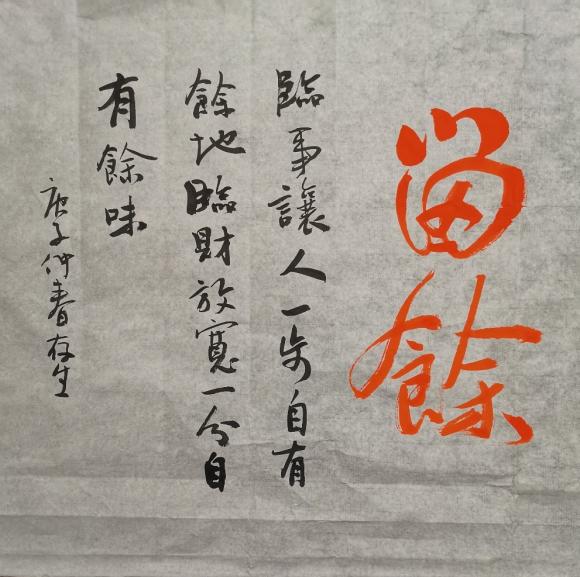 留餘
臨事讓人一步自有
餘地臨財放寬一分自
有餘味
庚子仲春存生